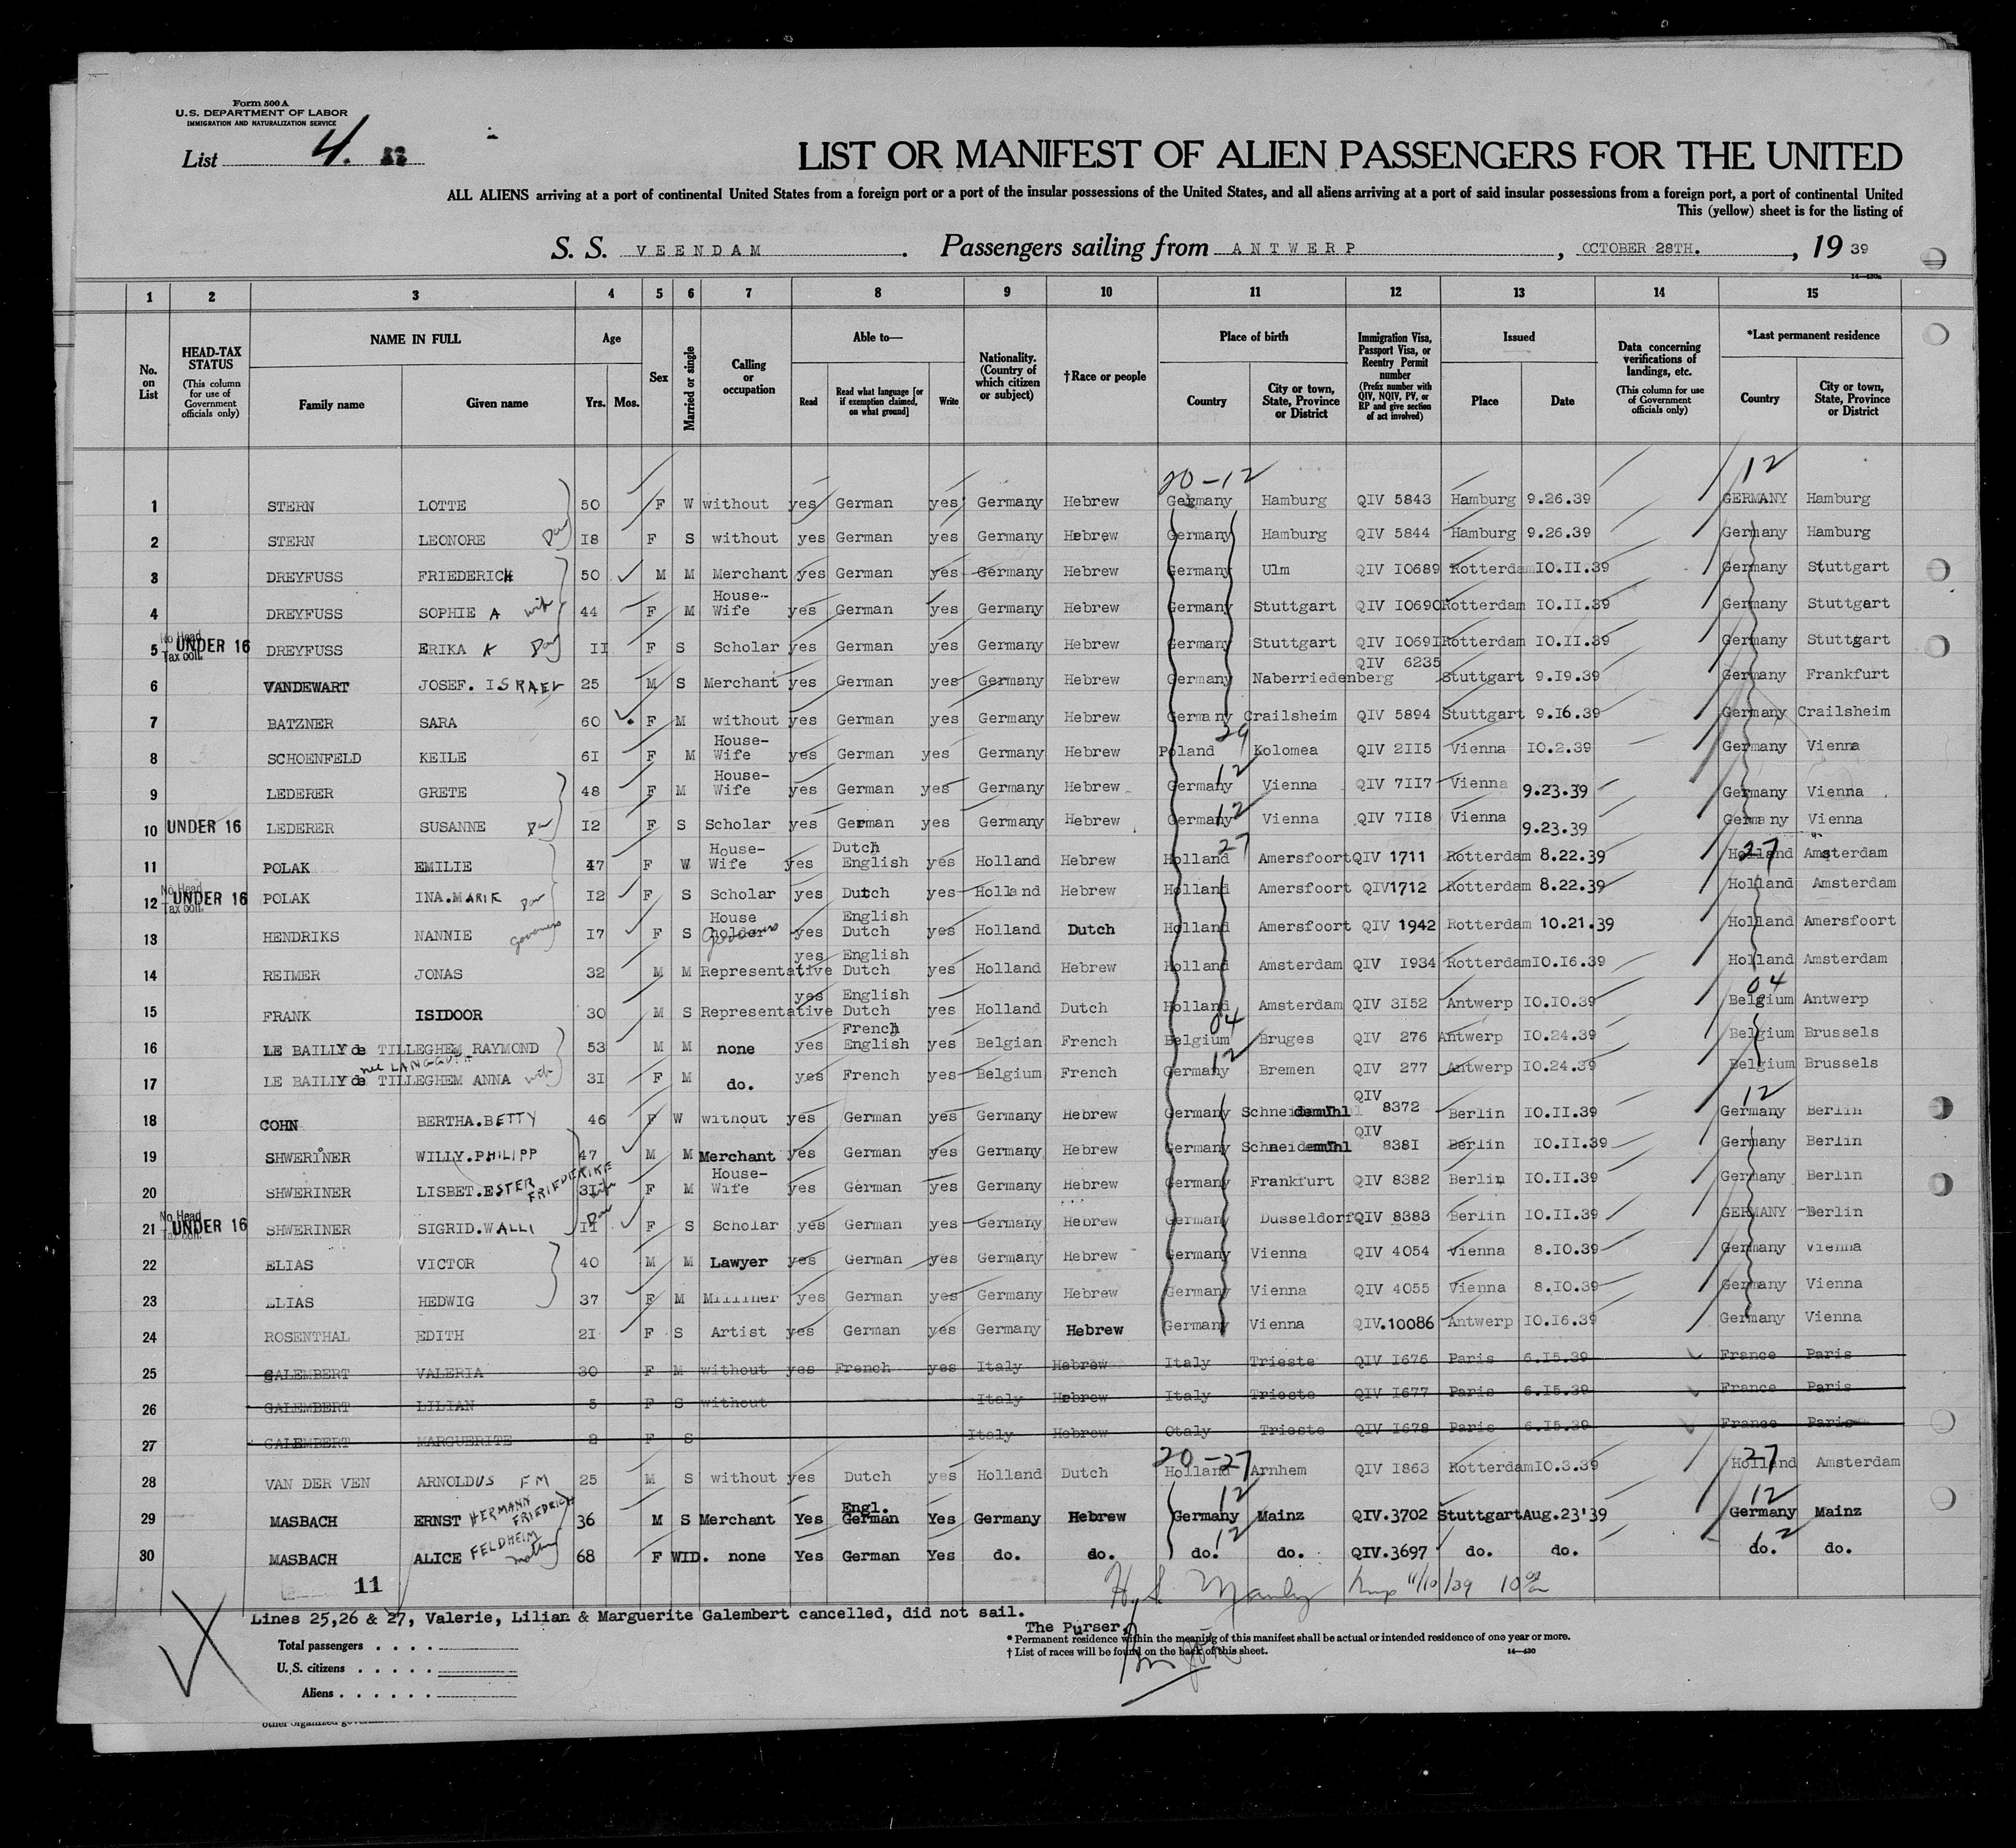 Form 500 A
U. S. DEPARTMENT OF LABOR
IMMIGRATION AND NATURALIZATION SERVICE
List 4.
LIST OR MANIFEST OF ALIEN PASSENGERS FOR THE UNITED
ALL ALIENS arriving at a port of continental United States from a foreign port or a port of the insular possessions of the United States, and all aliens arriving at a port of said insular possessions from a foreign port, a port of continental United
This (yellow) sheet is for the listing of
S. S. VEENDAM . Passengers sailing from ANTWERP , OCTOBER 28TH. , 19 39
1 2 3 4 5 6 7 8 9 10 11 12 13 14 15
No. on List
HEAD-TAX STATUS (This column for use of Government officials only)
NAME IN FULL Family name Given name
Age Yrs. Mos.
Sex
Married or single
Calling or occupation
Able to— Read Read what language [or if exemption claimed, on what ground] Write
Nationality. (Country of which citizen or subject)
†Race or people
Place of birth Country City or town, State, Province or District
Immigration Visa, Passport Visa, or Reentry Permit number (Prefix number with QIV, NQIV, PV, or RP and give section of act involved)
Issued Place Date
Data concerning verifications of landings, etc. (This column for use of Government officials only)
*Last permanent residence Country City or town, State, Province or District
20-12 12
1 STERN LOTTE 50 F W without yes German yes Germany Hebrew Germany Hamburg QIV 5843 Hamburg 9.26.39 GERMANY Hamburg
2 STERN LEONORE Dau 18 F S without yes German yes Germany Hebrew Germany Hamburg QIV 5844 Hamburg 9.26.39 Germany Hamburg
3 DREYFUSS FRIEDERICH 50 M M Merchant yes German yes Germany Hebrew Germany Ulm QIV I0689 Rotterdam I0.II.39 Germany Stuttgart
4 DREYFUSS SOPHIE A wife 44 F M House-Wife yes German yes Germany Hebrew Germany Stuttgart QIV I0690 Rotterdam I0.II.39 Germany Stuttgart
5 No Head Tax coll. UNDER 16 DREYFUSS ERIKA K Dau II F S Scholar yes German yes Germany Hebrew Germany Stuttgart QIV I069I Rotterdam I0.II.39 Germany Stuttgart
6 VANDEWART JOSEF. ISRAEL 25 M S Merchant yes German yes Germany Hebrew Germany Naberriedenberg QIV 6235 Stuttgart 9.I9.39 Germany Frankfurt
7 BATZNER SARA 60 F M without yes German yes Germany Hebrew Germany Crailsheim QIV 5894 Stuttgart 9.16.39 Germany Crailsheim
8 SCHOENFELD KEILE 6I F M House-Wife yes German yes Germany Hebrew Poland 29 Kolomea QIV 2II5 Vienna I0.2.39 Germany Vienna
9 LEDERER GRETE 48 F M House-Wife yes German yes Germany Hebrew Germany 12 Vienna QIV 7II7 Vienna 9.23.39 Germany Vienna
10 UNDER 16 LEDERER SUSANNE Dau I2 F S Scholar yes German yes Germany Hebrew Germany 12 Vienna QIV 7II8 Vienna 9.23.39 Germany Vienna
11 POLAK EMILIE 47 F W House-Wife yes Dutch English yes Holland Hebrew Holland 27 Amersfoort QIV 1711 Rotterdam 8.22.39 Holland 27 Amsterdam
12 No Head Tax coll. UNDER 16 POLAK INA.MARIE Dau I2 F S Scholar yes Dutch yes Holland Hebrew Holland Amersfoort QIV1712 Rotterdam 8.22.39 Holland Amsterdam
13 HENDRIKS NANNIE governess I7 F S House holder governess yes English Dutch yes Holland Dutch Holland Amersfoort QIV 1942 Rotterdam 10.21.39 Holland Amersfoort
14 REIMER JONAS 32 M M Representative yes English Dutch yes Holland Hebrew Holland Amsterdam QIV I934 Rotterdam I0.I6.39 Holland Amsterdam
15 FRANK ISIDOOR 30 M S Representative yes English Dutch yes Holland Dutch Holland Amsterdam QIV 3I52 Antwerp I0.I0.39 Belgium 04 Antwerp
16 LE BAILLY de TILLEGHEM RAYMOND 53 M M none yes French English yes Belgian French Belgium 04 Bruges QIV 276 Antwerp I0.24.39 Belgium Brussels
17 LE BAILLY de TILLEGHEM ANNA nee LANGGUTH wife 3I F M do. yes French yes Belgium French Germany 12 Bremen QIV 277 Antwerp I0.24.39 Belgium Brussels
18 COHN BERTHA.BETTY 46 F W without yes German yes Germany Hebrew Germany Schneidemühl QIV 8372 Berlin I0.II.39 Germany 12 Berlin
19 SHWERINER WILLY.PHILIPP 47 M M Merchant yes German yes Germany Hebrew Germany Schneidemühl QIV 838I Berlin I0.II.39 Germany Berlin
20 SHWERINER LISBET.ESTER FRIEDERIKE wife 3I F M House-Wife yes German yes Germany Hebrew Germany Frankfurt QIV 8382 Berlin I0.II.39 Germany Berlin
21 No Head Tax coll. UNDER 16 SHWERINER SIGRID.WALLI Dau II F S Scholar yes German yes Germany Hebrew Germany Dusseldorf QIV 8383 Berlin I0.II.39 GERMANY Berlin
22 ELIAS VICTOR 40 M M Lawyer yes German yes Germany Hebrew Germany Vienna QIV 4054 Vienna 8.I0.39 Germany Vienna
23 ELIAS HEDWIG 37 F M Milliner yes German yes Germany Hebrew Germany Vienna QIV 4055 Vienna 8.I0.39 Germany Vienna
24 ROSENTHAL EDITH 2I F S Artist yes German yes Germany Hebrew Germany Vienna QIV.10086 Antwerp I0.I6.39 Germany Vienna
25 GALEMBERT VALERIA 30 F M without yes French yes Italy Hebrew Italy Trieste QIV I676 Paris 6.I5.39 France Paris
26 GALEMBERT LILIAN 5 F S without Italy Hebrew Italy Trieste QIV I677 Paris 6.I5.39 France Paris
27 GALEMBERT MARGUERITE 2 F S Italy Hebrew Otaly Trieste QIV I678 Paris 6.I5.39 France Paris
28 VAN DER VEN ARNOLDUS FM 25 M S without yes Dutch yes Holland Dutch 20-27 Holland Arnhem QIV I863 Rotterdam I0.3.39 Holland 27 Amsterdam
29 MASBACH ERNST HERMANN FRIEDRICH 36 M S Merchant Yes Engl. German Yes Germany Hebrew Germany 12 Mainz QIV.3702 Stuttgart Aug.23'39 Germany 12 Mainz
30 MASBACH ALICE FELDHEIM mother 68 F WID. none Yes German Yes do. do. do. 12 do. QIV.3697 do. do. do. 12 do.
11
11/10/39
Lines 25,26 & 27, Valerie, Lilian & Marguerite Galembert cancelled, did not sail.
The Purser,
Total passengers . . . .
U. S. citizens . . . . .
Aliens . . . . . .
* Permanent residence within the meaning of this manifest shall be actual or intended residence of one year or more.
† List of races will be found on the back of this sheet.
14—430